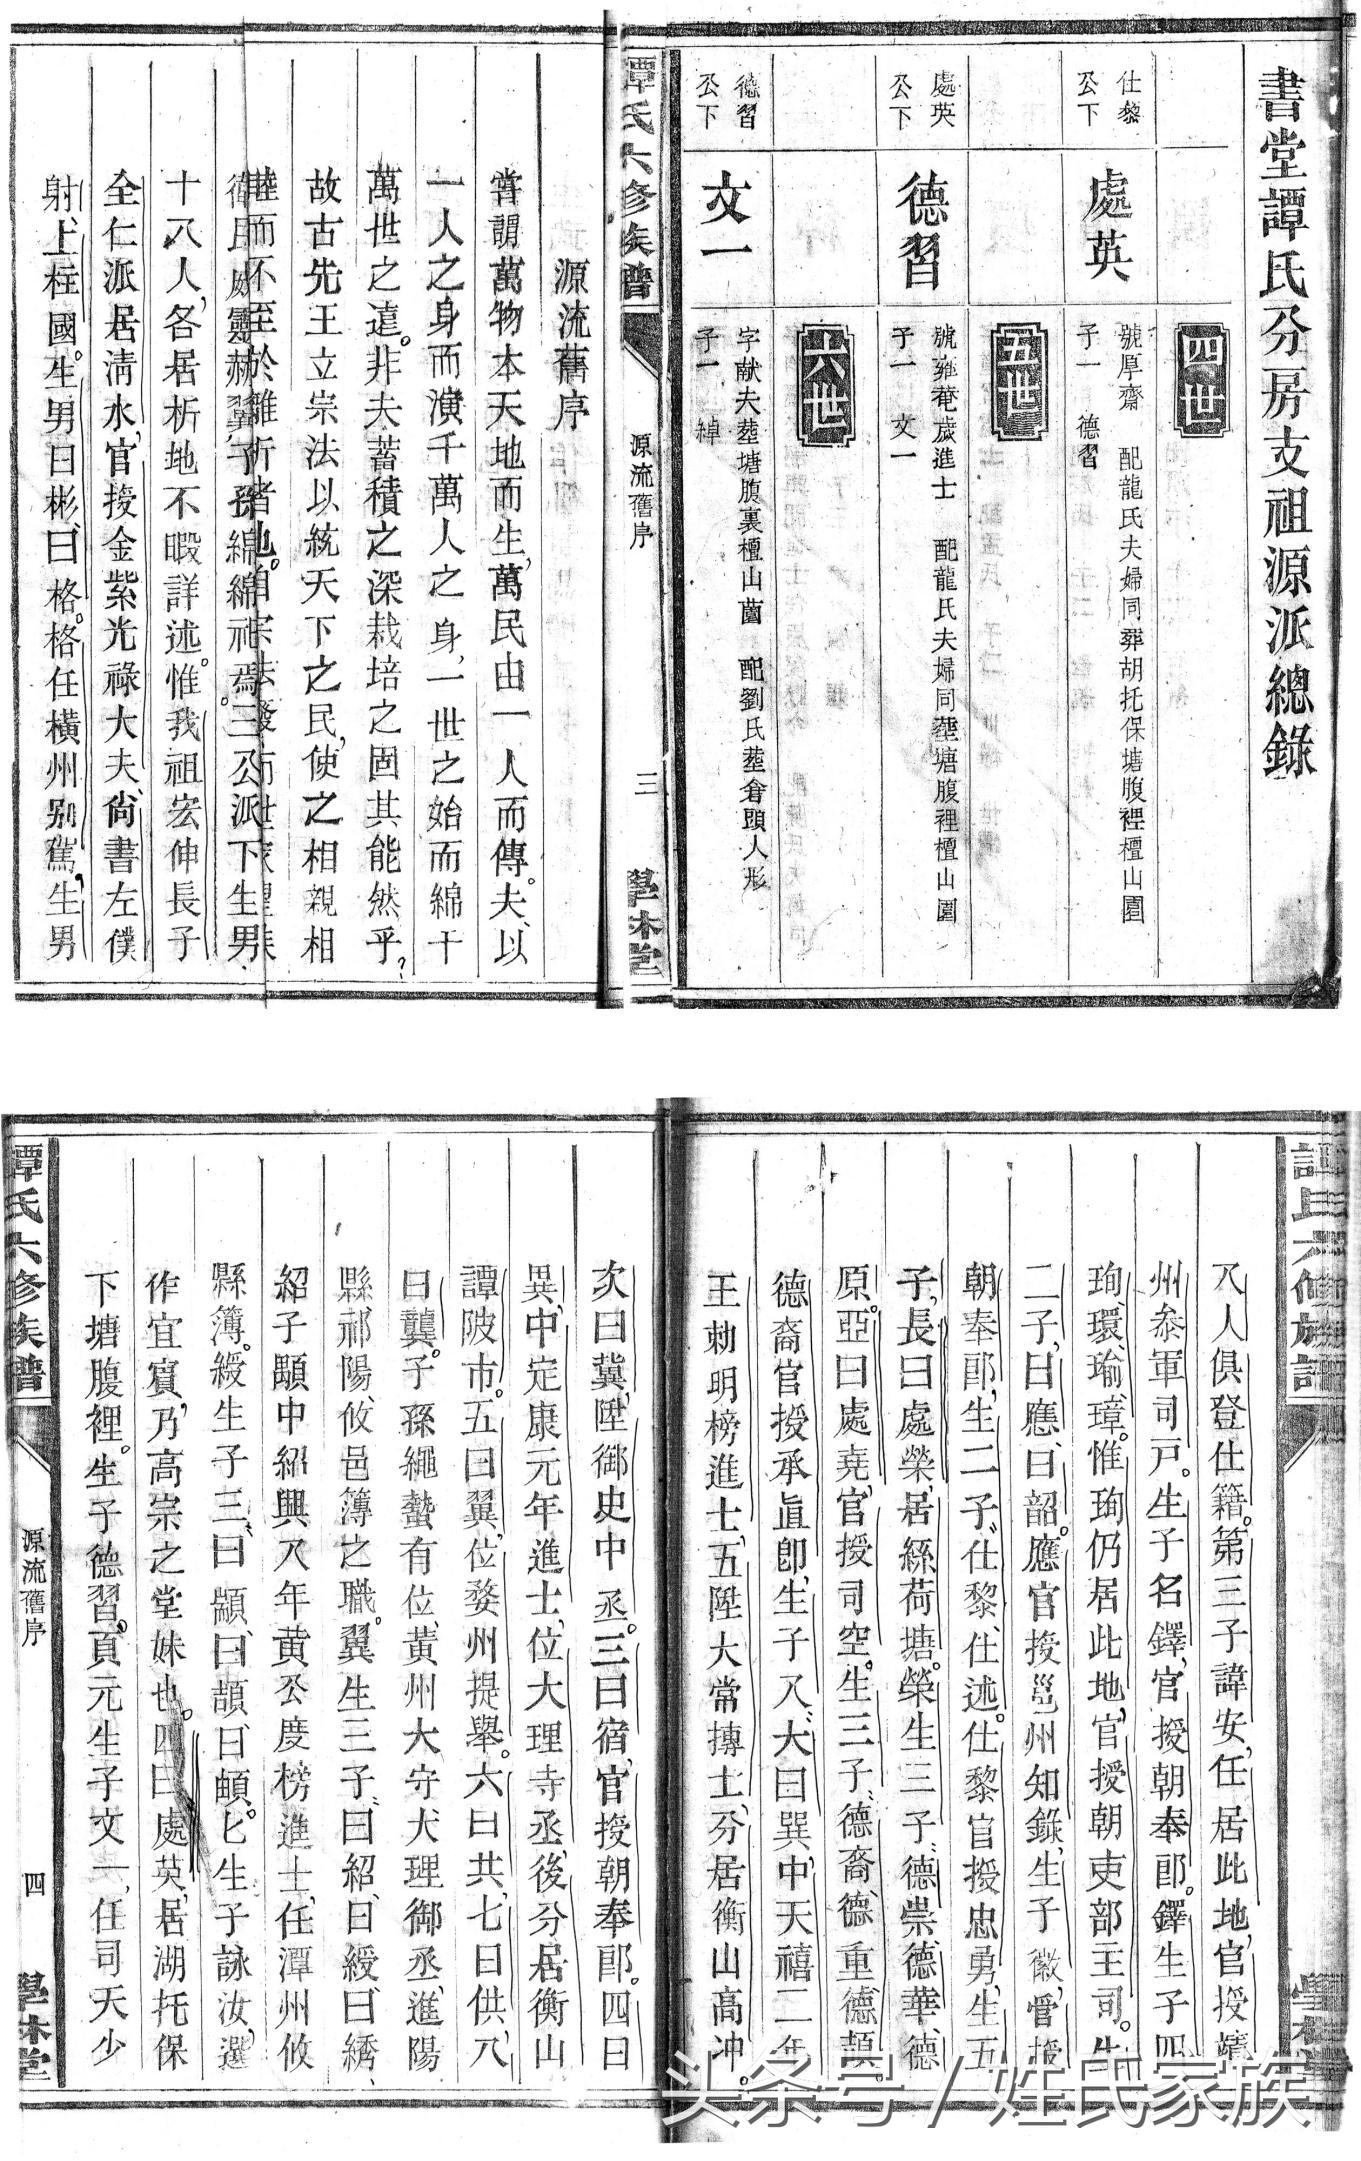 書堂譚氏分房支祖源派總錄
四世
仕黎公下
處英
號厚齋 配龍氏夫婦同葬胡托保塘腹裡檀山園
子一 德習
五世
處英公下
德習
號雍菴歲進士 配龍氏夫婦同塟塘腹裡檀山園
子一 文一
六世
德習公下
文一
字献夫塟塘腹裏檀山薗 配劉氏塟倉頭人形
子一 綽
譚氏六修族譜
源流舊序
三
學林堂
源流舊序
嘗謂萬物本天地而生,萬民由一人而傳。夫、以
一人之身而演千萬人之身,一世之始而綿千
萬世之遠。非夫蓄積之深栽培之固其能然乎?
故古先王立宗法以統天下之民,使之相親相
睦而不至於離析者也。自宗法廢而世家望族
衛民,威靈赫翼,子孫綿綿祀焉。三公派下生男
十八人,各居析地不暇詳述。惟我祖宏伸長子
全仁派居清水,官授金紫光祿大夫、尚書左僕
射、上柱國。生男曰彬、曰格。格任橫州別駕,生男
譚氏六修族譜
學林堂
八人俱登仕籍。第三子諱安,任居此地,官授
州叅軍司戸。生子名鐸,官授朝奉郎。鐸生子四
珣、環、瑜、璋。惟珣仍居此地,官授朝吏部主司。生
二子,曰應、曰韶。應官授邕州知錄,生子徽,官授
朝奉郎,生二子,仕黎、仕述。仕黎官授忠勇,生五
子,長曰處榮,居絲荷塘。榮生三子,德崇、德華、德
原。亞曰處堯,官授司空。生三子,德裔、德重、德頡。
德裔官授承直郎,生子八,大曰巽,中天禧二年
王勅明榜進士,五陞大常摶士、分居衡山高冲。
次曰冀,陞御史中丞。三曰宿,官授朝奉郎。四曰
異,中定康元年進士,位大理寺丞,後分居衡山
譚陂市。五曰翼,位婺州提舉。六曰共,七曰供,八
曰龔。子孫繩蟄有位,黃州大守大理御丞,進陽
縣祁陽、攸邑簿之職。翼生三子,曰紹、曰綬、曰綉、
紹子顯中紹興八年黄公度榜進士,任潭州攸
縣簿。綬生子三,曰顓、曰頡、曰頔。匕生子詠汝,選
作宜賓,乃高宗之堂妹也。四曰處英,居湖托保
下塘腹裡。生子德習,貢元生子文一,任司天少
譚氏六修族譜
源流舊序
四
學林堂
头条号/姓氏家族